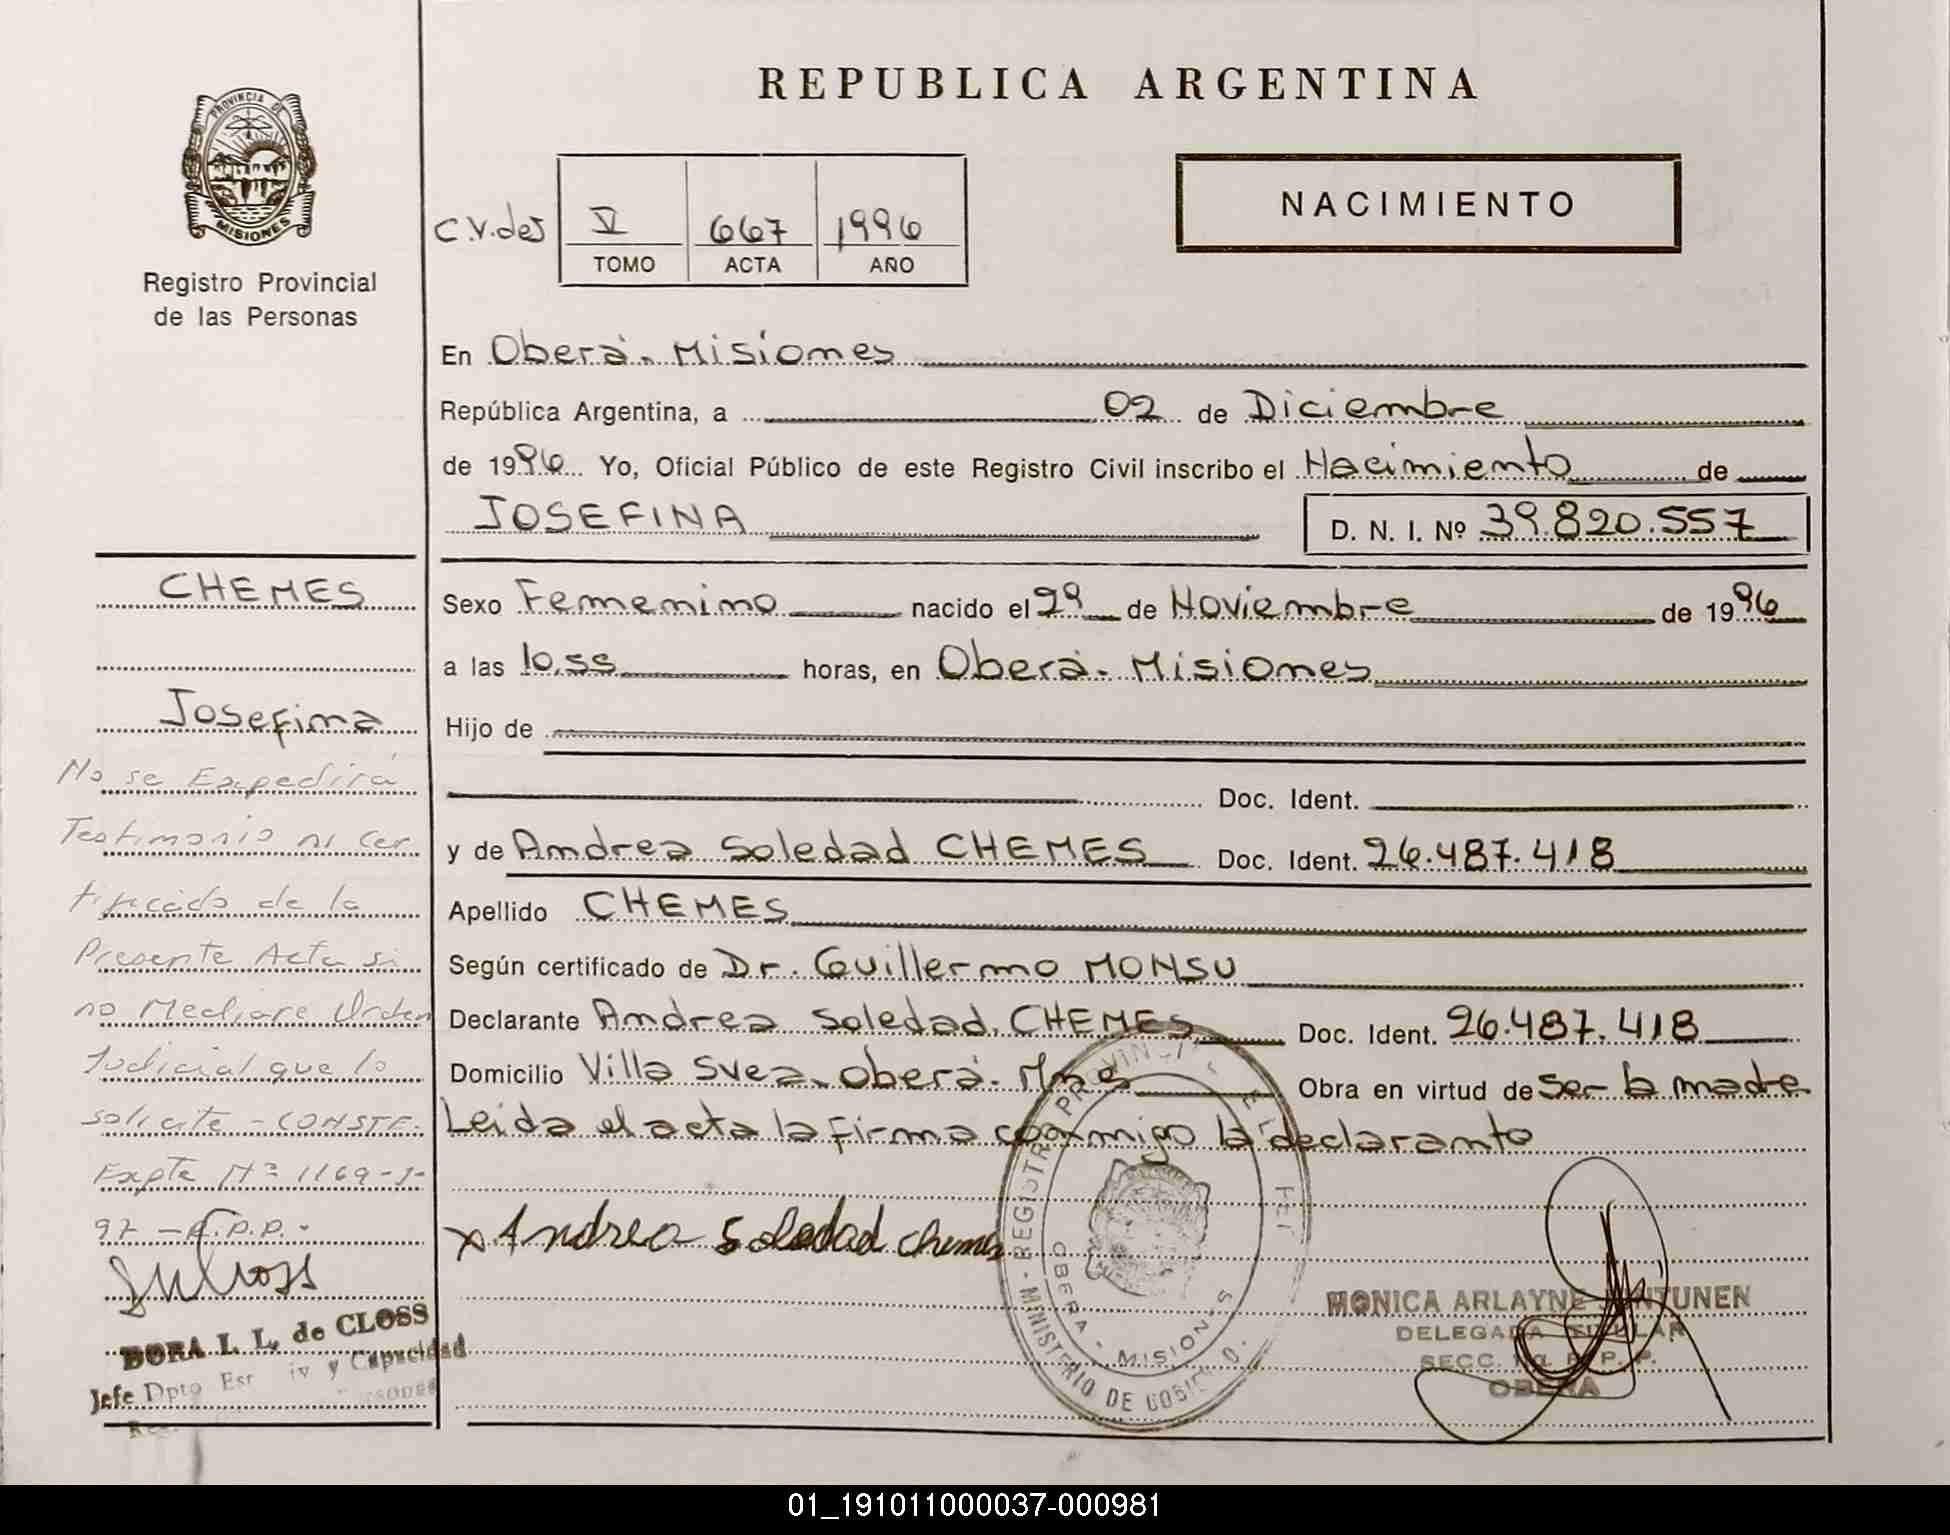 REPUBLICA ARGENTINA
PROVINCIA DE
MISIONES
Registro Provincial
de las Personas
C.V.des
V 667 1996
TOMO ACTA AÑO
NACIMIENTO
En Oberá. Misiones
República Argentina, a 02 de Diciembre
de 1996 Yo, Oficial Público de este Registro Civil inscribo el Nacimiento de
JOSEFINA D. N. I. Nº 39.820.557
Sexo Femenino nacido el 29 de Noviembre de 1996
a las 10,55 horas, en Oberá. Misiones
Hijo de
Doc. Ident.
y de Andrea Soledad CHEMES Doc. Ident. 26.487.418
Apellido CHEMES
Según certificado de Dr. Guillermo MONSU
Declarante Andrea Soledad CHEMES Doc. Ident. 26.487.418
Domicilio Villa Svea. Oberá. Mnes Obra en virtud de Ser la madre
Leida el acta la firma conmigo la declarante
x Andrea Soledad Chemes
CHEMES
Josefina
No se Expedirá
Testimonio ni Cer
tificado de la
Presente Acta si
no Mediare Orden
Judicial que lo
solicite - CONSTE.
Expte Nº 1169-J-
97 - R.P.P.-
DORA I. L. de CLOSS
Jefe Dpto y Capacidad
REGISTRO PROVINCIAL DE
MINISTERIO DE GOBIERNO
OBERA - MISIONES
MONICA ARLAYNE
DELEGADA TITULAR
SECC. R. P. P.
OBERA
01_191011000037-000981